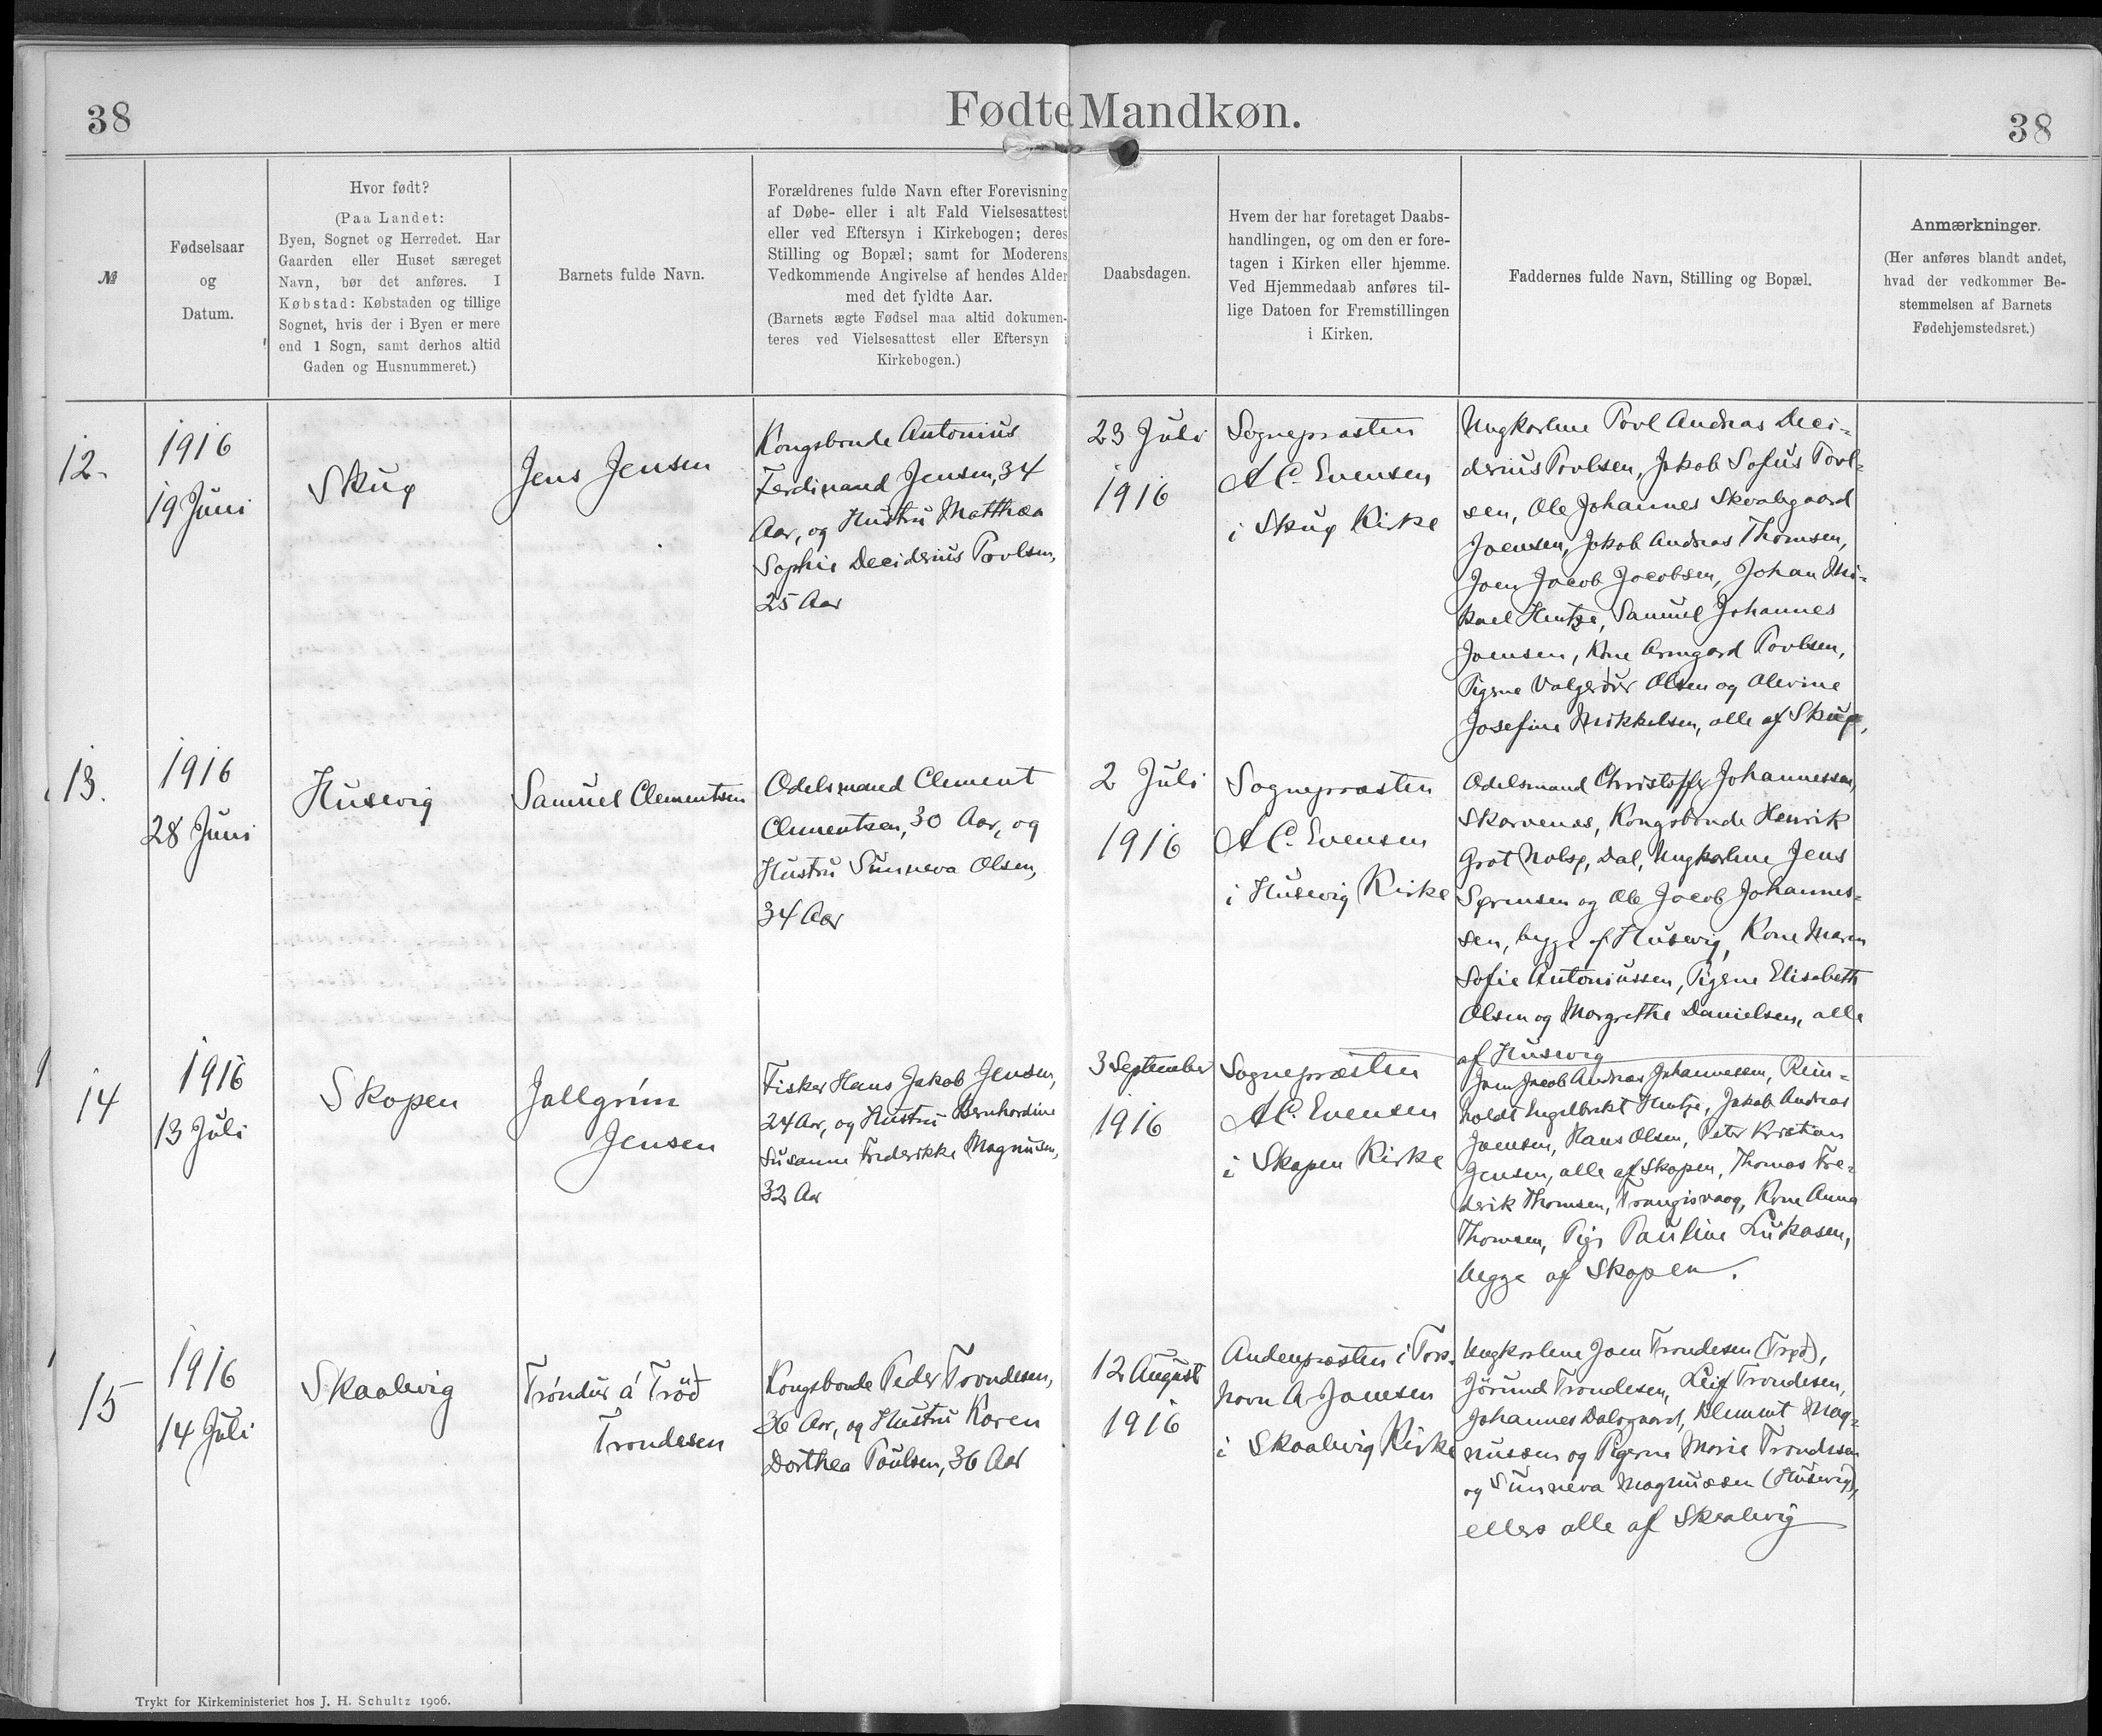 38
Fødte Mandkøn.
38
№
Fødselsaar
og
Datum.
Hvor født?
(Paa Landet:
Byen, Sognet og Herredet. Har
Gaarden eller Huset særeget
Navn, bør det anføres. I
Købstad: Købstaden og tillige
Sognet, hvis der i Byen er mere
end 1 Sogn, samt derhos altid
Gaden og Husnummeret.)
Barnets fulde Navn.
Forældrenes fulde Navn efter Forevisning
af Døbe- eller i alt Fald Vielsesattest
eller ved Eftersyn i Kirkebogen; deres
Stilling og Bopæl; samt for Moderens
Vedkommende Angivelse af hendes Alder
med det fyldte Aar.
(Barnets ægte Fødsel maa altid dokumen-
teres ved Vielsesattest eller Eftersyn i
Kirkebogen.)
Daabsdagen.
Hvem der har foretaget Daabs-
handlingen, og om den er fore-
tagen i Kirken eller hjemme.
Ved Hjemmedaab anføres til-
lige Datoen for Fremstillingen
i Kirken.
Faddernes fulde Navn, Stilling og Bopæl.
Anmærkninger.
(Her anføres blandt andet,
hvad der vedkommer Be-
stemmelsen af Barnets
Fødehjemstedsret.)
12.
1916
19 Juni
Skuø
Jens Jensen
Kongsbonde Antonius
Ferdinand Jensen, 34
Aar, og Hustru Matthæa
Sophie Deciderius Povlsen,
25 Aar
23 Juli
1916
Sognepræsten
A C. Evensen
i Skuø Kirke
Ungkarlene Povl Andreas Deci-
derius Povlsen, Jakob Sofus Povl-
sen, Ole Johannes Skaalegaard
Joensen, Jakob Andreas Thomsen,
Joen Jacob Jacobsen, Johan Mi-
kael Hentze, Samuel Johannes
Joensen, Kone Armgard Povlsen,
Pigerne Valgerður Olsen og Olevine
Josefine Mikkelsen, alle af Skuø.
13.
1916
28 Juni
Husevig
Samuel Clementsen
Odelsmand Clement
Clementsen, 30 Aar, og
Hustru Sunneva Olsen,
34 Aar
2 Juli
1916
Sognepræsten
A C. Evensen
i Husevig Kirke
Odelsmand Christoffer Johannessen,
Skarvenes, Kongsbonde Henrik
Grot Nolsø, Dal, Ungkarlene Jens
Sørensen og Ole Jacob Johannes-
sen, begge af Husevig, Kone Maren
Sofie Antoniussen, Pigerne Elisabeth
Olsen og Margrethe Danielsen, alle
af Husevig
14
1916
13 Juli
Skopen
Jallgrím
Jensen
Fisker Hans Jakob Jensen,
24 Aar, og Hustru Bernhardine
Susanne Frederikke Magnusen,
32 Aar
3 September
1916
Sognepræsten
A C. Evensen
i Skopen Kirke
Joen Jacob Andreas Johannesen, Rein-
holdt Engelbrekt Hentze, Jakob Andreas
Joensen, Hans Olsen, Peter Kristian
Jensen, alle af Skopen, Thomas Fre-
derik Thomsen, Trangisvaag, Kone Anna
Thomsen, Pige Pauline Lukasen,
begge af Skopen.
15
1916
14 Juli
Skaalevig
Tróndur á Tröð
Trondesen
Kongsbonde Peder Trondesen,
36 Aar, og Hustru Karen
Dorthea Poulsen, 36 Aar
12 August
1916
Andenpræsten i Tors-
havn A Joensen
i Skaalevig Kirke
Ungkarlene Joen Trondesen (Trød),
Jörund Trondesen, Leif Trondesen,
Johannes Dalsgaard, Klement Mag-
nussen og Pigerne Marie Trondesen
og Sunneva Magnussen (Husevig),
ellers alle af Skaalevig
Trykt for Kirkeministeriet hos J. H. Schultz 1906.